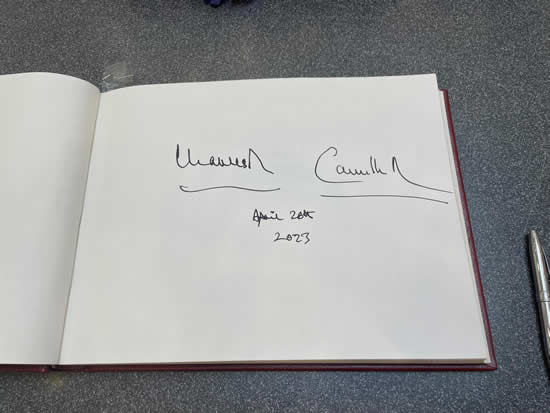 Charles R Camilla R
April 20th
2023